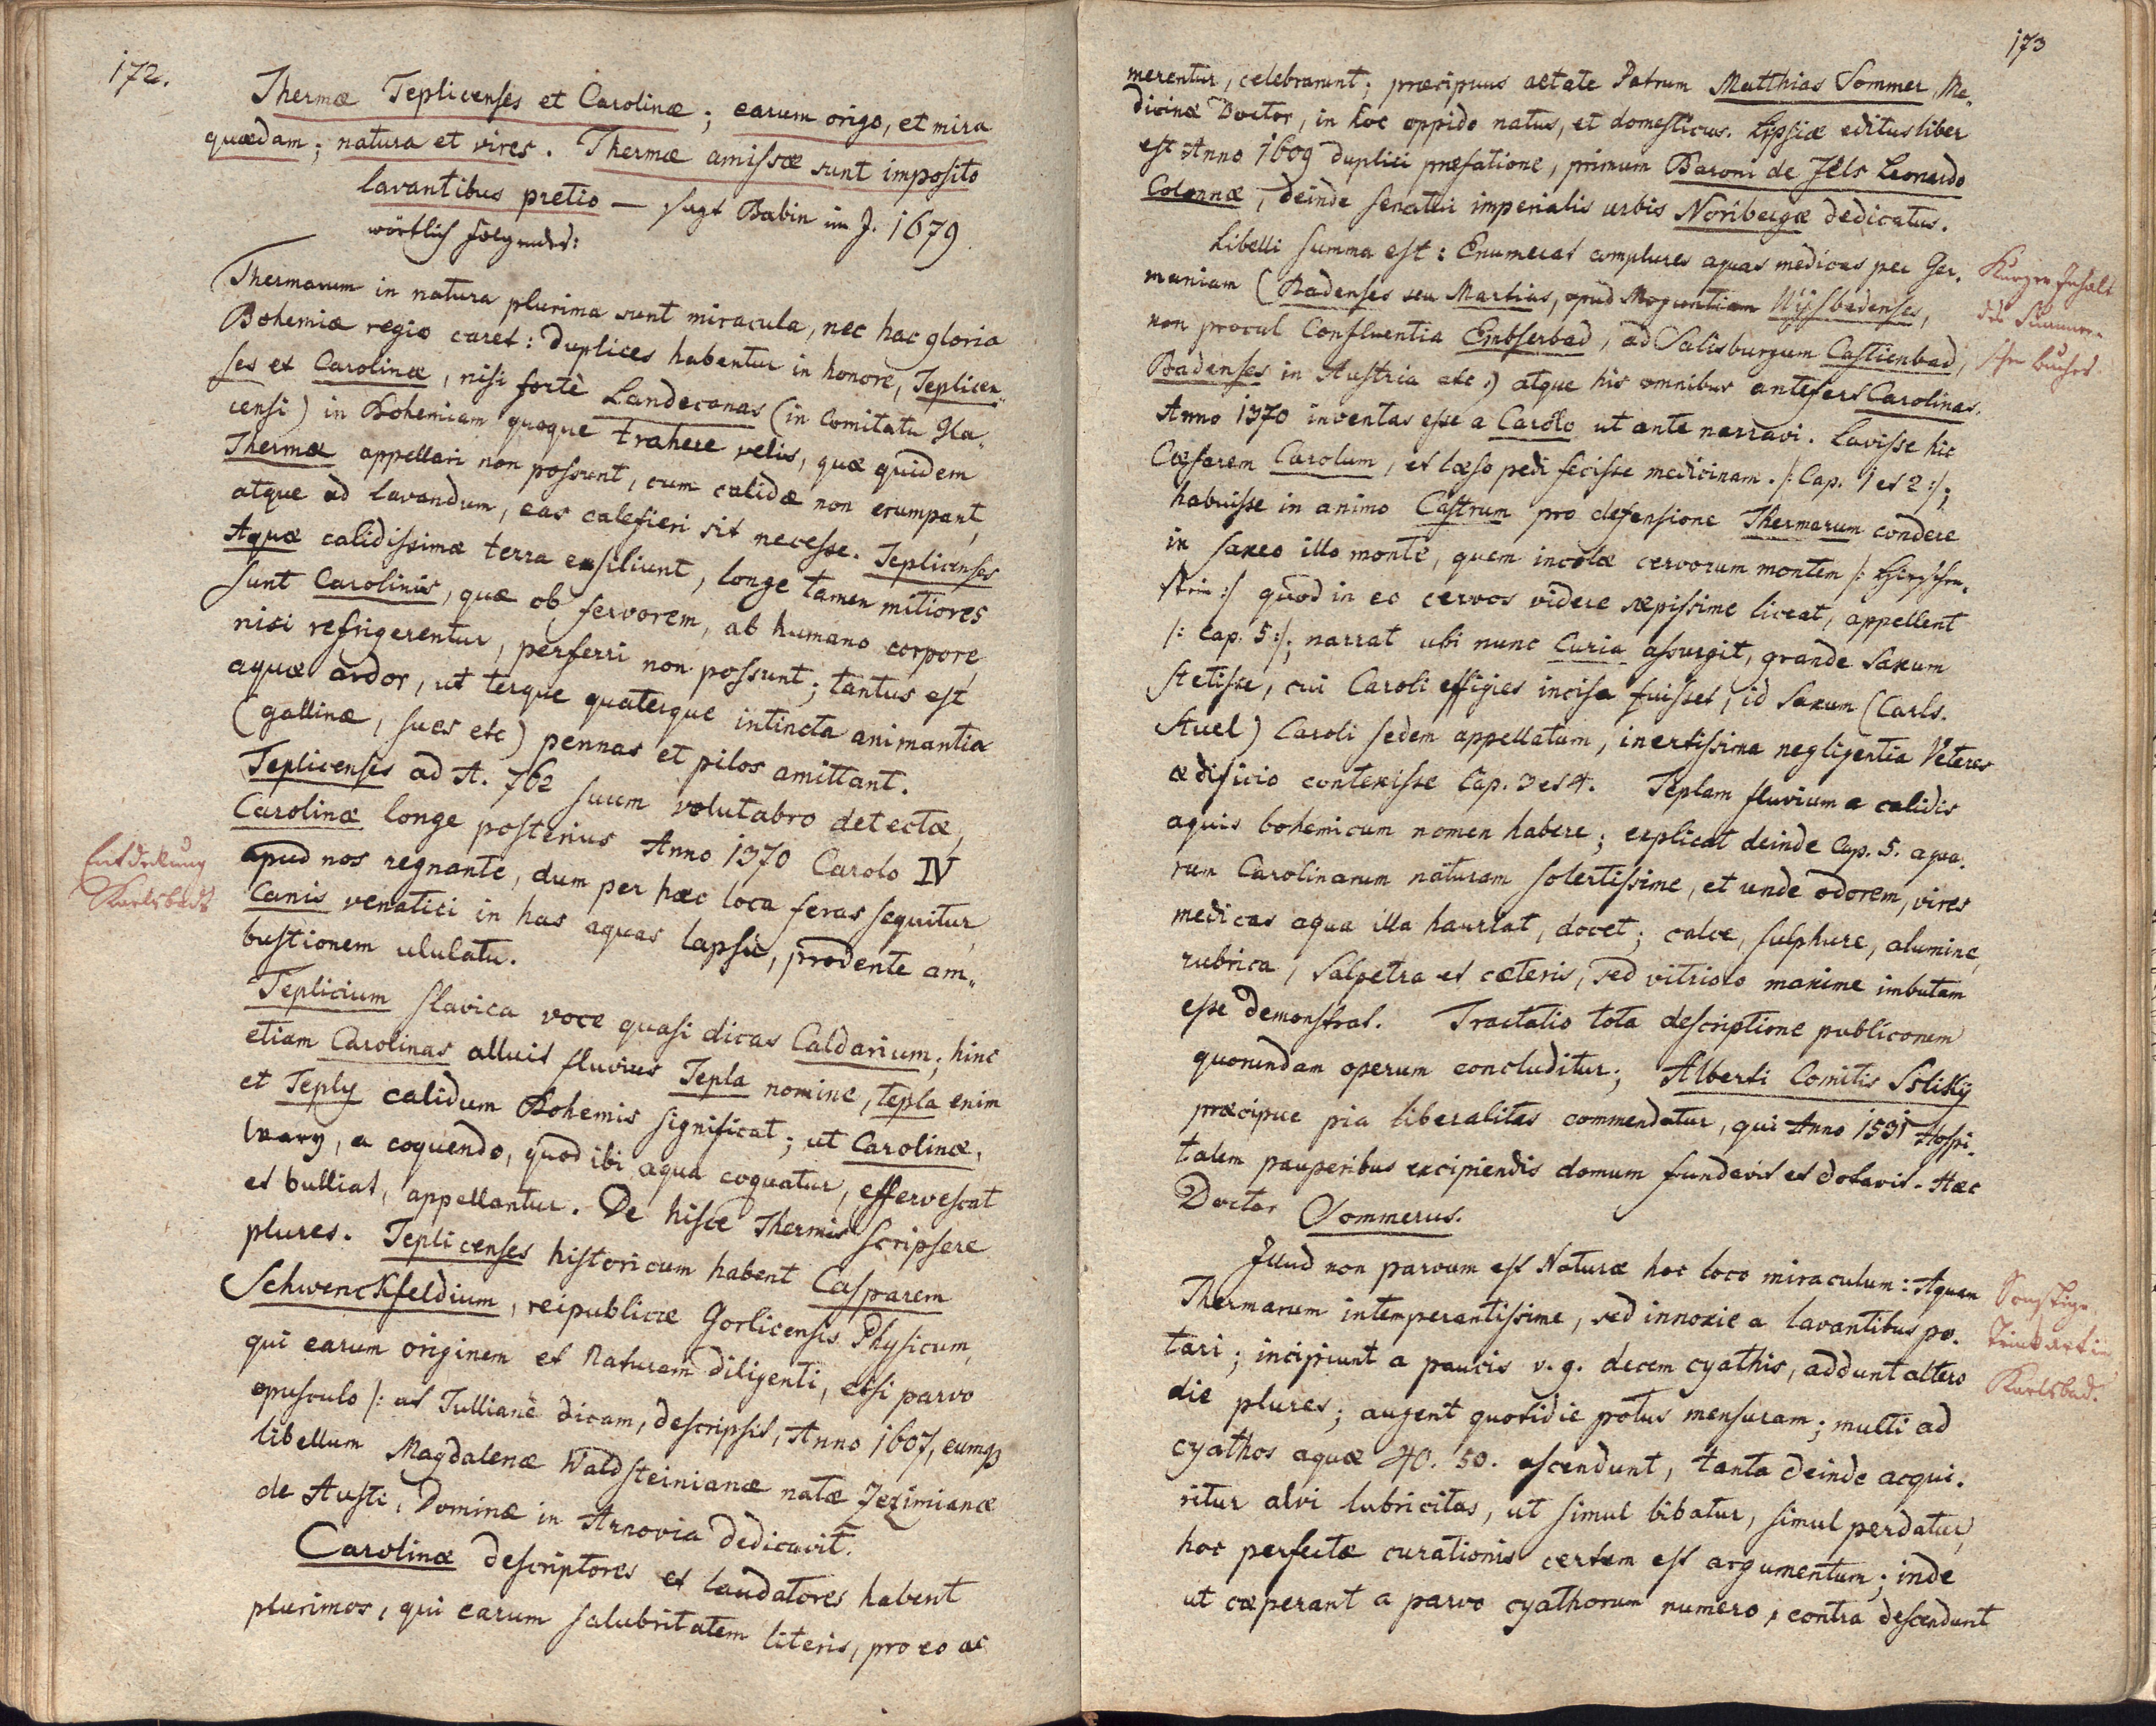 172.
Thermæ Teplicenses et Carolinæ; earum origo, et mira
quædam; natura et vires. Thermæ amissæ sunt imposito
lavantibus pretio — sagt Balbin im J. 1679.
wörtlich folgendes:
Thermarum in natura plurima sunt miracula, nec hac gloria
Bohemiæ regio caret: duplices habentur in honore, Teplicen„
ses et Carolinæ, nisi fortè Landecanas (in Comitatu Gla„
censi) in Bohemiam quoque trahere velis, quæ quidem
Thermæ appellari non possunt, cum calidæ non erumpant,
atque ad lavandum, eas calefieri sit necesse. Teplicenses
Aquæ calidissimæ terra exsiliunt, longe tamen mitiores
sunt Carolinis, quæ ob fervorem, ab humano corpore,
nisi refrigerentur, perferri non possunt; tantus est
aquæ ardor, ut terque quaterque intincta animantia
(gallinæ, sues etc) pennas et pilos amittant.
Teplicenses ad A. 762 suum volutabro detectæ,
Carolinæ longe posterius Anno 1370 Carolo IV
Entdekung
Karlsbads
apud nos regnante, dum per hæc loca feras sequitur,
Canis venatici in has aquas lapsu, prodente am„
bustionem ululatu.
Teplicium slavica voce quasi dicas Caldarium; hinc
etiam Carolinas alluit fluvius Tepla nomine, tepla enim
et Teply calidum Bohemis significat; ut Carolinæ,
Wary, a coquendo, quod ibi aqua coquatur, effervescat
et bulliat, appellantur. De hisce Thermis scripsere
plures. Teplicenses historicum habent Casparem
Schwenckfeldium, reipublicæ Gorlicensis Physicum,
qui earum originem et Naturam diligenti, etsi parvo
opusculo /: ut Tullianè dicam, descripsit, Anno 1607, eumq
libellum Magdalenæ Waldsteinianæ natæ Jezimianæ
de Austi, Dominæ in Arnovia dedicavit.
Carolinæ descriptores et laudatores habent
plurimos, qui earum salubritatem literis, pro eo ac
173
merentur, celebrarunt; præcipuus aetate Patrum Matthias Sommer, Me„
dicinæ Doctor, in hoc oppido natus, et domesticus. Lipsiæ editus liber
est Anno 1609 duplici præfatione, primum Baroni de Fels Leonardo
Colonnæ, deinde senatui imperialis urbis Noribergæ dedicatus.
Libelli summa est: Enumerat complures aquas medicas per Ger„
maniam (Badenses seu Martias, apud Moguntiam Wisbadenses,
non procul Confluentia Embserbad, ad Salisburgum Castienbad,
Badenses in Austria etc.) atque his omnibus antefert Carolinas.
Kurzer Inhalt
des Sommer„
schen Buches.
Anno 1370 inventas esse a Carolo ut ante narravi. Lavisse hic
Cæsarem Carolum, et læso pedi fecisse medicinam. /: Cap. 1 et 2 :/;
habuisse in animo Castrum pro defensione Thermarum condere
in saxeo illo monte, quem incolæ cervorum montem /: Hirschen„
stein :/ quod in eo cervos videre sæpissime liceat, appellent
/: Cap. 5 :/; narrat ubi nunc Curia assurgit, grande Saxum
stetisse, cui Caroli effigies incisa fuisset, id Saxum (Carls„
stuel) Caroli sedem appellatam, inertissima negligentia Veteres
ædificio contexisse Cap. 3 et 4. Teplam fluvium a calidis
aquis bohemicum nomen habere; explicat deinde Cap. 5. aqua„
rum Carolinarum naturam solertissime, et unde odorem, vires
medicas aqua illa hauriat, docet; calce, sulphure, alumine,
rubrica, Salpetra et cæteris, sed vitriolo maxime imbutam
esse demonstrat. Tractatio tota descriptione publicorum
quorundam operum concluditur; Alberti Comitis Sslikÿ
præcipue pia liberalitas commendatur, qui Anno 1531 Hospi„
talem pauperibus excipiendis domum fundavit et dotavit. Hæc
Doctor Sommerus.
Illud non parvum est Naturæ hoc loco miraculum: Aquam
Thermarum intemperantissime, sed innoxie a lavantibus po„
tari; incipiunt a paucis v. g. decem cyathis, addunt altero
Sonstige
Trinkart in
Karlsbad.
die plures; augent quotidie potus mensuram; multi ad
cyathos aquæ 40. 50. ascendunt, tanta deinde acqui„
ritur alvi lubricitas, ut simul bibatur, simul perdatur,
hoc perfectæ curationis certum est argumentum; inde
ut cæperant a parvo cyathorum numero, contra descendunt